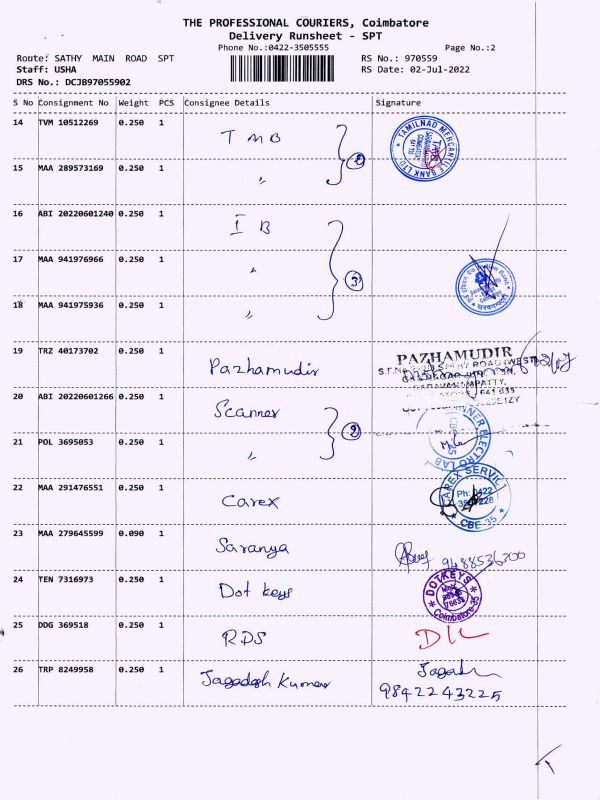 THE PROFESSIONAL COURIERS, Coimbatore
Delivery Runsheet - SPT
Phone No.:0422-3505555 Page No.:2
Route: SATHY MAIN ROAD SPT RS No.: 970559
Staff: USHA RS Date: 02-Jul-2022
DRS No.: DCJB97055902
S No Consignment No Weight PCS Consignee Details Signature
14 TVM 10512269 0.250 1 TMB 2
TAMILNAD MERCANTILE BANK LTD
15 MAA 289573169 0.250 1 "
16 ABI 20220601240 0.250 1 IB
17 MAA 941976966 0.250 1 " 3
18 MAA 941975936 0.250 1 "
19 TRZ 40173702 0.250 1 Pazhamudir PAZHAMUDIR
20 ABI 20220601266 0.250 1 Scanner 2
21 POL 3695053 0.250 1 "
22 MAA 291476551 0.250 1 Carex
CAREX SERVIC
CBE-35
23 MAA 279645599 0.090 1 Saranya 9488536200
24 TEN 7316973 0.250 1 Dot keys DOTKEYS
Coimbatore-35
25 DDG 369518 0.250 1 RDS D/L
26 TRP 8249958 0.250 1 Jagadesh Kumar
9842243225